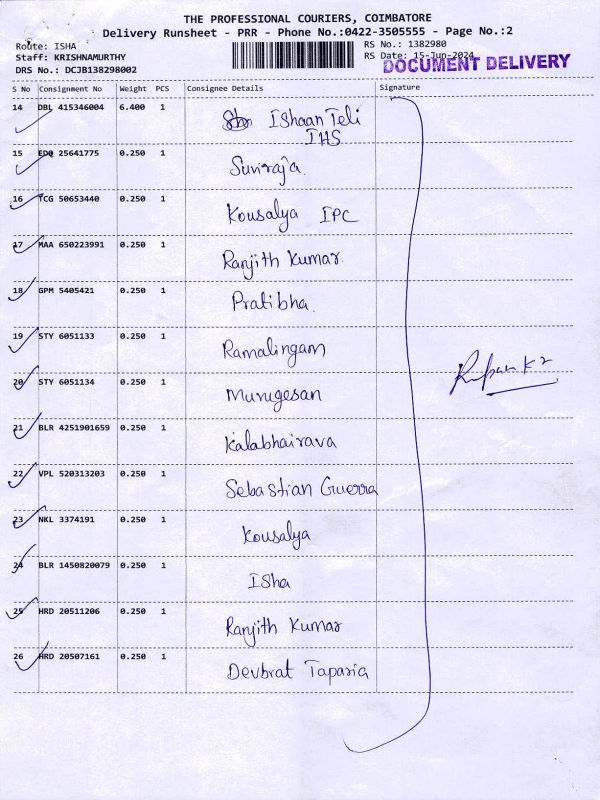 THE PROFESSIONAL COURIERS, COIMBATORE
Delivery Runsheet - PRR - Phone No.:0422-3505555 - Page No.:2
Route: ISHA RS No.: 1382980
Staff: KRISHNAMURTHY RS Date: 15-Jun-2024
DRS No.: DCJB138298002 DOCUMENT DELIVERY
S No Consignment No Weight PCS Consignee Details Signature
14 DBL 415346004 6.400 1 Ishaan Teli
IHS
15 EDQ 25641775 0.250 1 Suviraja
16 TCG 50653440 0.250 1 Kousalya IPC
17 MAA 650223991 0.250 1 Ranjith Kumar
18 GPM 5405421 0.250 1 Pratibha
19 STY 6051133 0.250 1 Ramalingam
20 STY 6051134 0.250 1 Murugesan
21 BLR 4251901659 0.250 1 Kalabhairava
22 VPL 520313203 0.250 1 Sebastian Guerra
23 NKL 3374191 0.250 1 Kousalya
24 BLR 1450820079 0.250 1 Isha
25 HRD 20511206 0.250 1 Ranjith Kumar
26 HRD 20507161 0.250 1 Devbrat Taparia